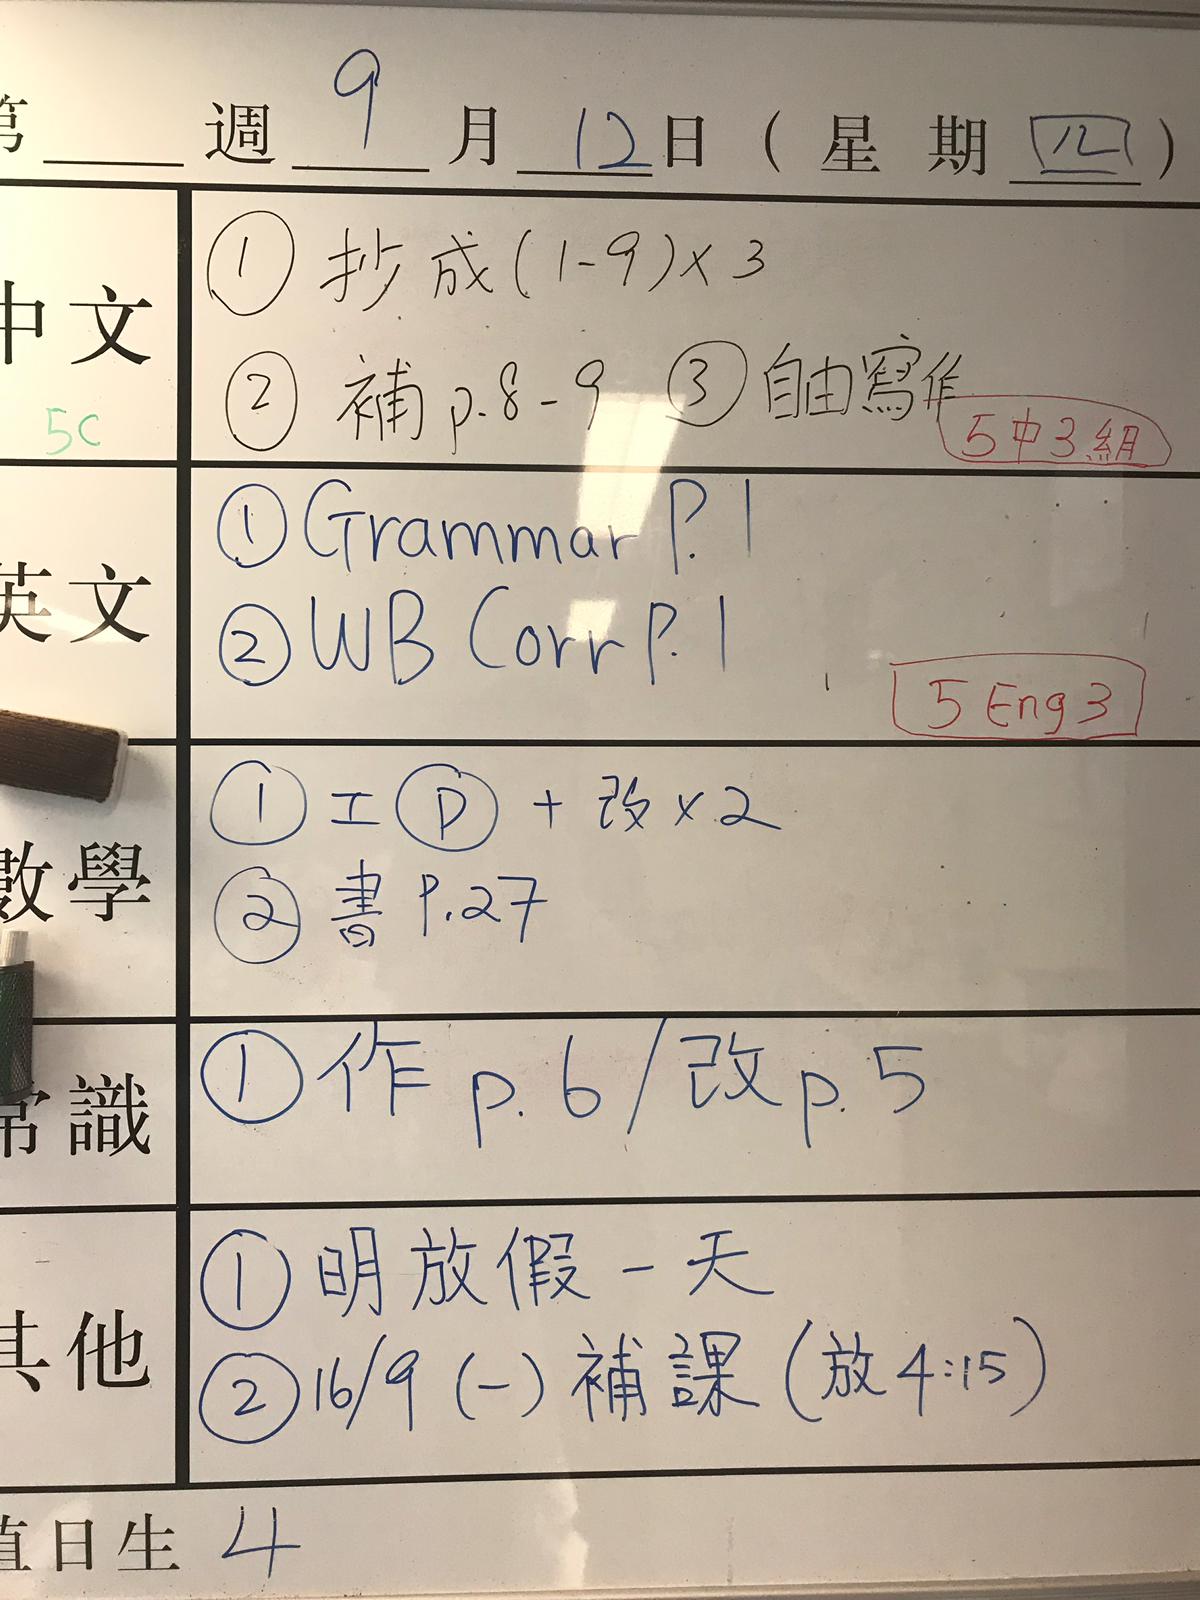 第 週 9 月 12 日 ( 星期 四 )
中文 ① 抄成(1-9)x3
② 補p.8-9 ③ 自由寫作
5C
5中3組
英文 ① Grammar P.1
② WB Corr P.1
5 Eng 3
數學 ① 工Ⓟ + 改x2
② 書 P.27
常識 ① 作 p.6/改p.5
其他 ① 明放假一天
② 16/9 (一) 補課 (放4:15)
值日生 4